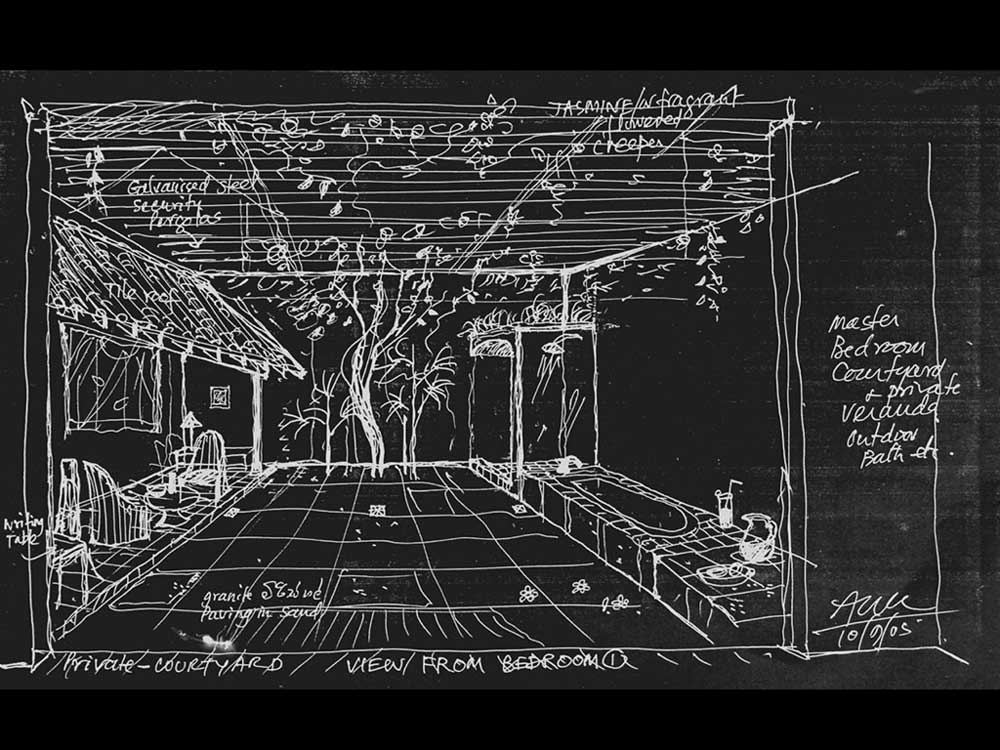 JASMINE/ fragrant
flowered
creeper
Galvanised steel
security
pergolas
Tile roof
master
Bedroom
Courtyard
+ private
veranda
outdoor
Bath etc.
writing
Table
granite
paving in sand
10/9/05
PRIVATE-COURTYARD / VIEW FROM BEDROOM ①